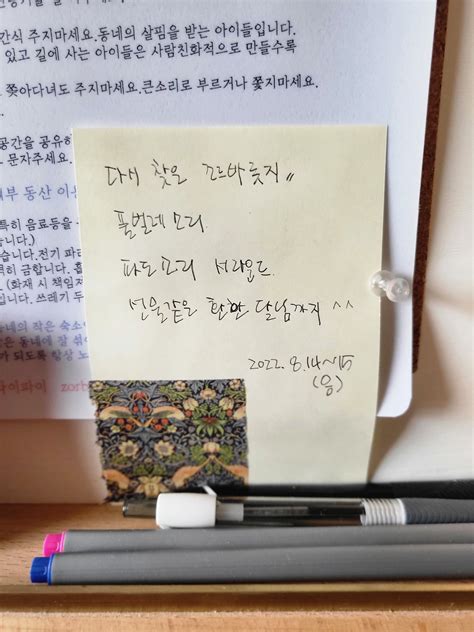 간식 주지마세요.동네의 살핌을 받는 아이들입니다.
있고 길에 사는 아이들은 사람친화적으로 만들수록
쫒아다녀도 주지마세요.큰소리로 부르거나 쫓지마세요.
공간을 공유하
문자주세요.
동산 이용
특히 음료등을
니다.)
습니다.전기 파리
격히 금합니다.
(화재 시 책임져
입니다. 쓰레기 두
동네의 작은 숙소
은 동네에 잘 섞이
가 되도록 항상 노
다시 찾은 조르바롯지"
풀벌레 소리
파도소리 서라운드
선물같은 환한 달님까지 ^^
2022. 8.14~15
(용)